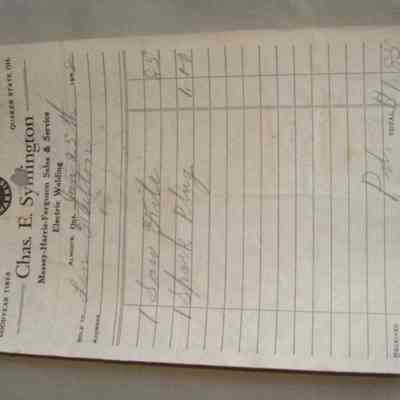 GOODYEAR TIRES QUAKER STATE OIL
Chas. E. Symington
Massey-Harris-Ferguson Sales & Service
Electric Welding
Almonte, Ont. 25th 195
Sold to
Address
1 Saw File .85
1 Spark Plug 1.00
Pd.
Received TOTAL 1.85